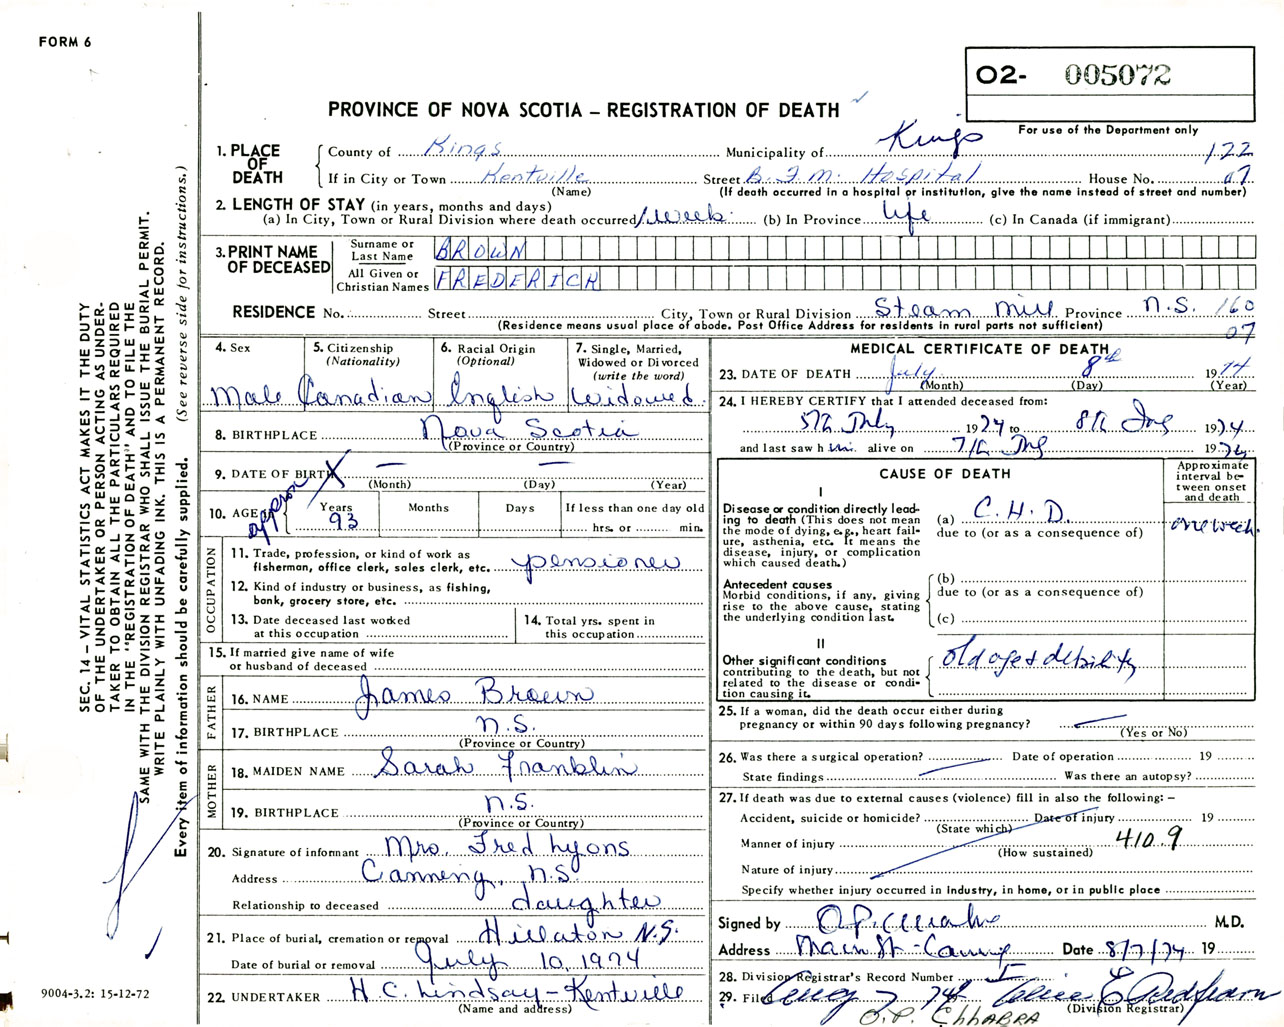 FORM 6
O2- 005072
PROVINCE OF NOVA SCOTIA – REGISTRATION OF DEATH
For use of the Department only
1. PLACE OF DEATH
County of Kings Municipality of Kings 122
If in City or Town Kentville Street B.F.M. Hospital House No. 07
(Name) (If death occurred in a hospital or institution, give the name instead of street and number)
2. LENGTH OF STAY (in years, months and days)
(a) In City, Town or Rural Division where death occurred 1 week (b) In Province life (c) In Canada (if immigrant)
3. PRINT NAME OF DECEASED
Surname or Last Name BROWN
All Given or Christian Names FREDERICK
RESIDENCE No. Street City, Town or Rural Division Steam Mill Province N.S. 160
(Residence means usual place of abode. Post Office Address for residents in rural parts not sufficient) 07
4. Sex 5. Citizenship (Nationality) 6. Racial Origin (Optional) 7. Single, Married, Widowed or Divorced (write the word)
Male Canadian English Widowed
8. BIRTHPLACE Nova Scotia
(Province or Country)
9. DATE OF BIRTH X — —
(Month) (Day) (Year)
approx
10. AGE Years Months Days If less than one day old
93 hrs. or min.
OCCUPATION
11. Trade, profession, or kind of work as fisherman, office clerk, sales clerk, etc. pensioner
12. Kind of industry or business, as fishing, bank, grocery store, etc.
13. Date deceased last worked at this occupation
14. Total yrs. spent in this occupation
15. If married give name of wife or husband of deceased
FATHER
16. NAME James Brown
17. BIRTHPLACE N.S.
(Province or Country)
MOTHER
18. MAIDEN NAME Sarah Franklin
19. BIRTHPLACE N.S.
(Province or Country)
20. Signature of informant Mrs. Fred Lyons
Address Canning, N.S.
Relationship to deceased daughter
21. Place of burial, cremation or removal Hillaton N.S.
Date of burial or removal July 10, 1974
22. UNDERTAKER H.C. Lindsay - Kentville
(Name and address)
MEDICAL CERTIFICATE OF DEATH
23. DATE OF DEATH July 8th 1974
(Month) (Day) (Year)
24. I HEREBY CERTIFY that I attended deceased from:
5th July 1974 to 8th July 1974
and last saw him alive on 7th July 1974
CAUSE OF DEATH
Approximate interval between onset and death
I
Disease or condition directly leading to death (This does not mean the mode of dying, e.g., heart failure, asthenia, etc. It means the disease, injury, or complication which caused death.)
(a) C.H.D. one week
due to (or as a consequence of)
Antecedent causes
Morbid conditions, if any, giving rise to the above cause, stating the underlying condition last.
(b)
due to (or as a consequence of)
(c)
II
Other significant conditions contributing to the death, but not related to the disease or condition causing it.
old age & debility
25. If a woman, did the death occur either during pregnancy or within 90 days following pregnancy?
(Yes or No)
26. Was there a surgical operation? Date of operation 19
State findings Was there an autopsy?
27. If death was due to external causes (violence) fill in also the following: –
Accident, suicide or homicide? Date of injury 19
(State which)
Manner of injury 410.9
(How sustained)
Nature of injury
Specify whether injury occurred in industry, in home, or in public place
Signed by M.D.
Address Main St - Canning Date 8/7/74 19
28. Division Registrar's Record Number
29. Filed
(Division Registrar)
O.P. CHHABRA
SEC. 14 – VITAL STATISTICS ACT MAKES IT THE DUTY
OF THE UNDERTAKER OR PERSON ACTING AS UNDER-
TAKER TO OBTAIN ALL THE PARTICULARS REQUIRED
IN THE "REGISTRATION OF DEATH" AND TO FILE THE
SAME WITH THE DIVISION REGISTRAR WHO SHALL ISSUE THE BURIAL PERMIT.
WRITE PLAINLY WITH UNFADING INK. THIS IS A PERMANENT RECORD.
Every item of information should be carefully supplied. (See reverse side for instructions.)
9004-3.2: 15-12-72